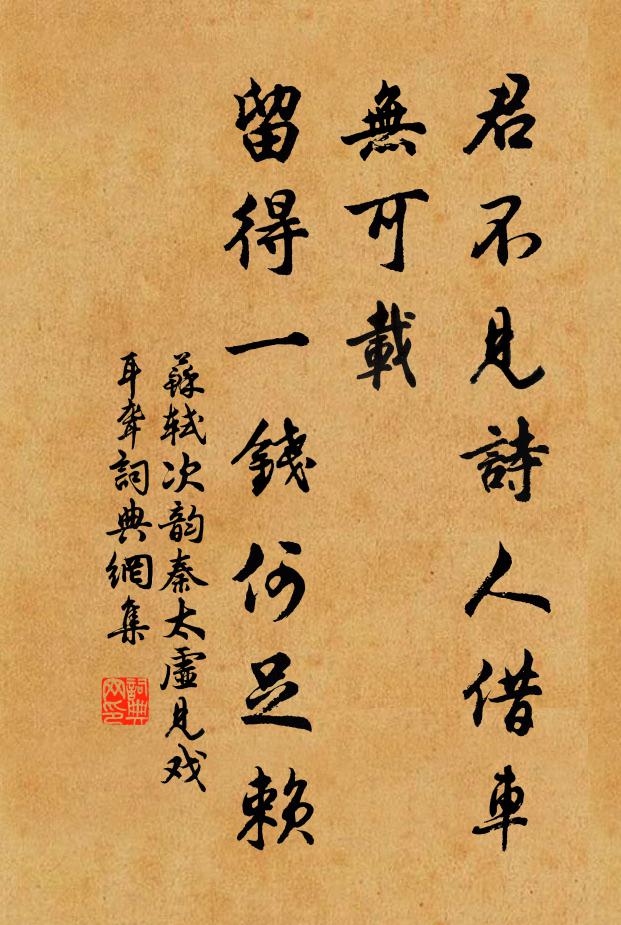 君不見詩人借車
無可載
留得一錢何足賴
蘇軾次韵秦太虛見戏
耳聋詞典網集
詞典网印